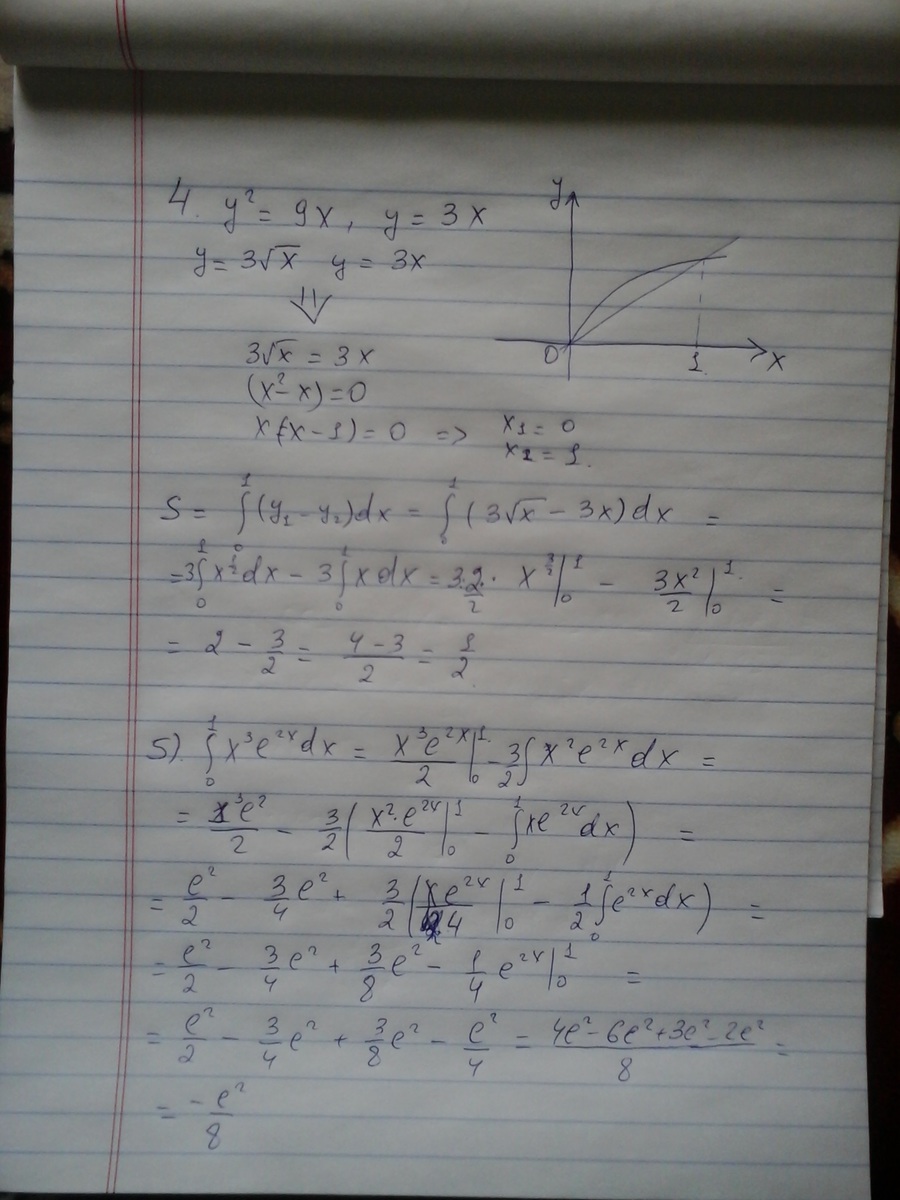 4. y² = 9x, y = 3x
y = 3√x y = 3x
⇓
3√x = 3x
(x² - x) = 0
x(x - 1) = 0 => x₁ = 0
x₂ = 1.
y
0 1 x
S = ∫₀¹ (y₁ - y₂)dx = ∫₀¹ (3√x - 3x)dx =
= 3∫₀¹ x^(1/2) dx - 3∫₀¹ x dx = 3·2/2 · x^(3/2) |₀¹ - 3x²/2 |₀¹ =
= 2 - 3/2 = (4 - 3)/2 = 1/2
5). ∫₀¹ x³e^(2x) dx = x³e^(2x)/2 |₀¹ - 3/2 ∫ x²e^(2x) dx =
= x³e²/2 - 3/2 (x²·e^(2x)/2 |₀¹ - ∫₀¹ xe^(2x) dx) =
= e²/2 - 3/4 e² + 3/2 (xe^(2x)/4 |₀¹ - 1/2 ∫₀¹ e^(2x) dx) =
= e²/2 - 3/4 e² + 3/8 e² - 1/4 e^(2x) |₀¹ =
= e²/2 - 3/4 e² + 3/8 e² - e²/4 = (4e² - 6e² + 3e² - 2e²)/8 =
= -e²/8